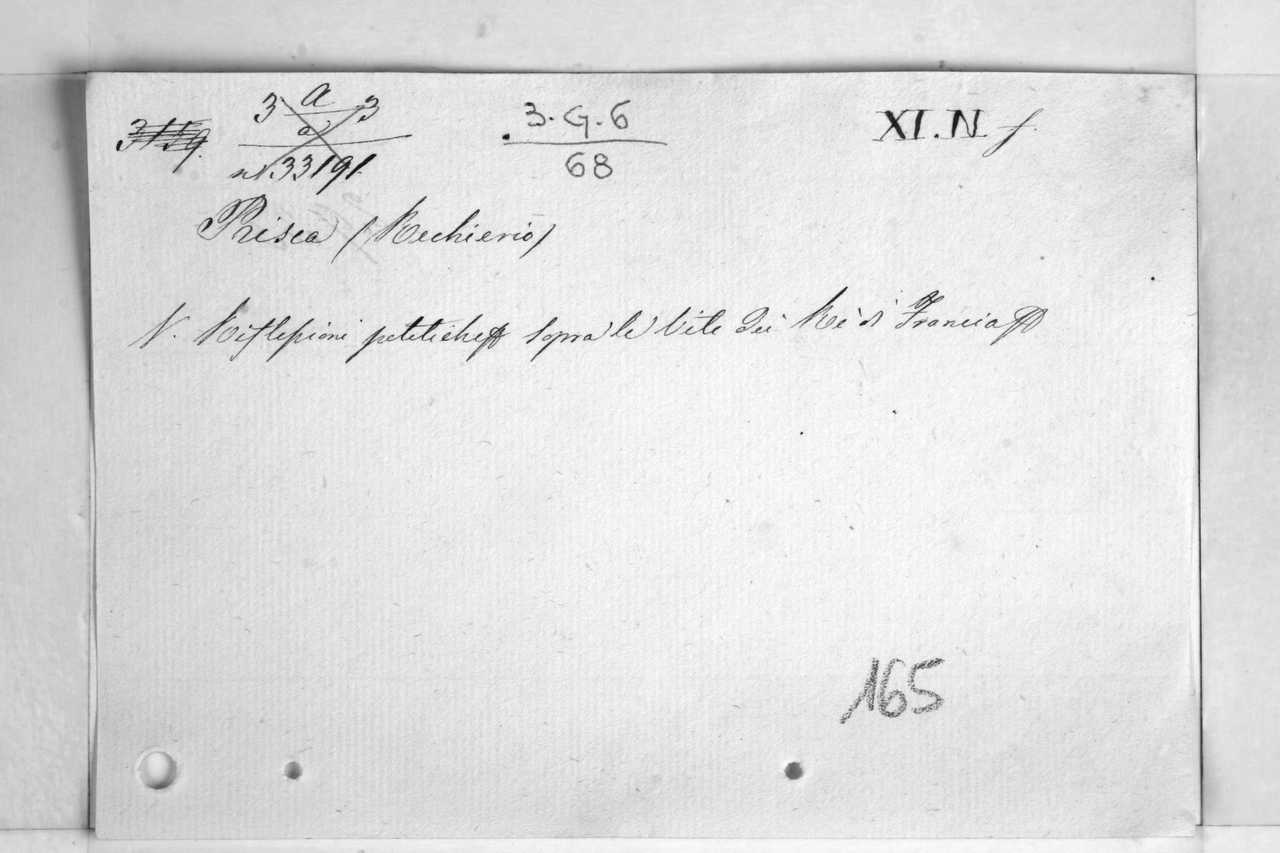 3 a 3
a
N. 33191.
3. G. 6
68
XI. N f.
Prisca (Mechierio)
V. Riflessioni politiche sopra le Vite dei Re di Francia
165